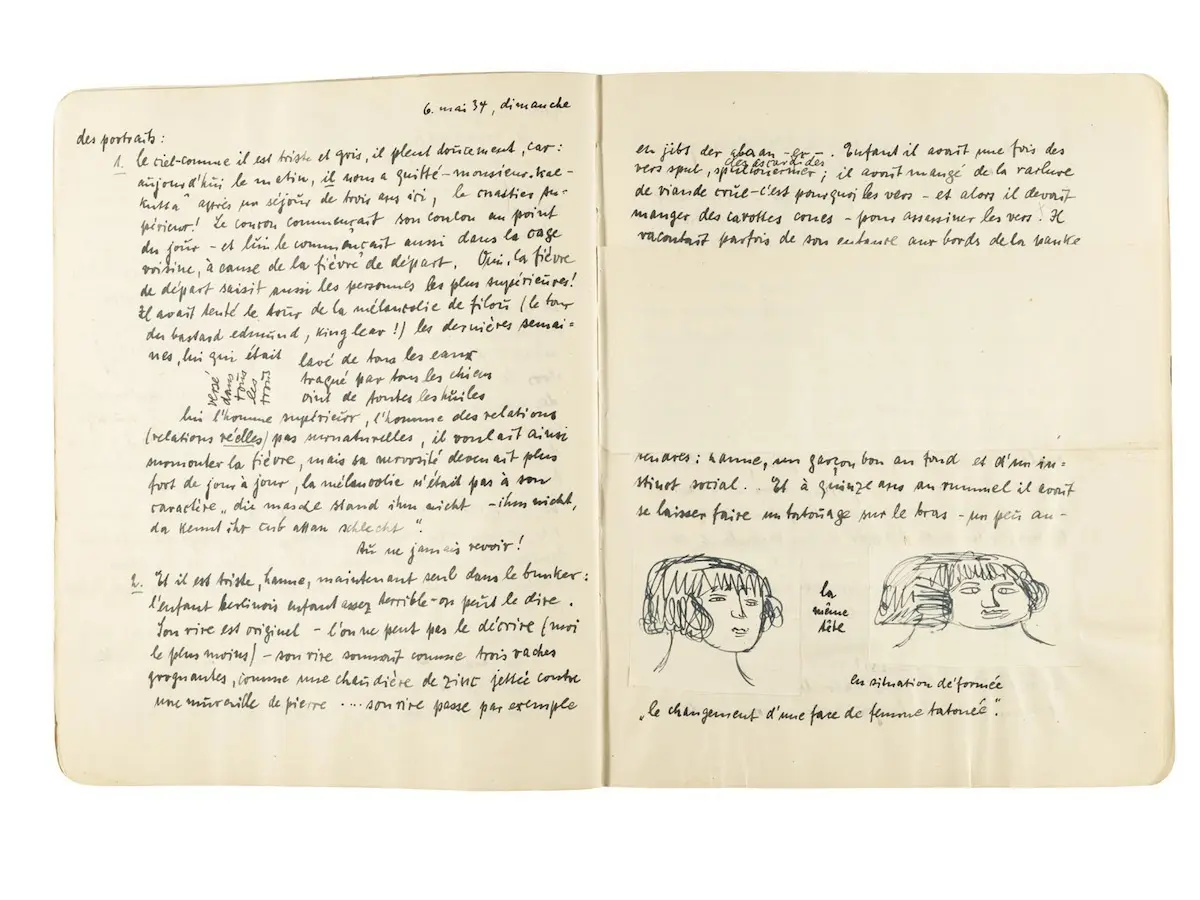 6. mai 34, dimanche
des portraits:
1. le ciel-comme il est triste et gris, il pleut doucement, car:
aujourd'hui le matin, il nous a quitté-monsieur "kal-
kutta" après un séjour de trois ans ici, le su-
périeur! Le commençait son au point
du jour - et lui le commençait aussi dans la cage
voisine, à cause de la fièvre de départ. Oui, la fièvre
de départ saisit aussi les personnes les plus supérieures!
Il avait tenté le tour de la mélancolie de filou (le tour
du bastard edmund, king lear!) les dernières semai=
nes, lui qui était lavé de tous les eaux
versé dans tous les trous
traqué par tous les chiens
oint de toutes les huiles
lui l'homme supérieur, l'homme des relations
(relations réelles) pas surnaturelles, il voulait ainsi
surmonter la fièvre, mais sa nervosité devenait plus
fort de jour à jour, la mélancolie n'était pas à son
caractère „die maske stand ihm nicht - ihm nicht,
da kennt ihr schlecht".
Au ne jamais revoir!
2. Et il est triste, hanne, maintenant seul dans le bunker:
l'enfant berlinois enfant assez terrible-on peut le dire.
Son rire est originel - l'on ne peut pas le décrire (moi
le plus moins) - son rire sonnait comme trois vaches
grognantes, comme une chaudière de zinc jettée contre
une muraille de pierre .... son rire passe par exemple
en jibs der . Enfant il avait une fois des
des ascarides
vers spul, spulwürmer; il avait mangé de la raclure
de viande crue-c'est pourquoi les vers - et alors il devait
manger des carottes crues - pour assassiner les vers. Il
racontait parfois de son enfance aux bords de la panke
: hanne, un garçon bon au fond et d'un in=
stinct social.. Et à quinze ans au rummel il avait
se laisser faire un tatouage sur le bras - un peu an-
la
même
tête
en situation déformée
„le changement d'une face de femme tatouée".